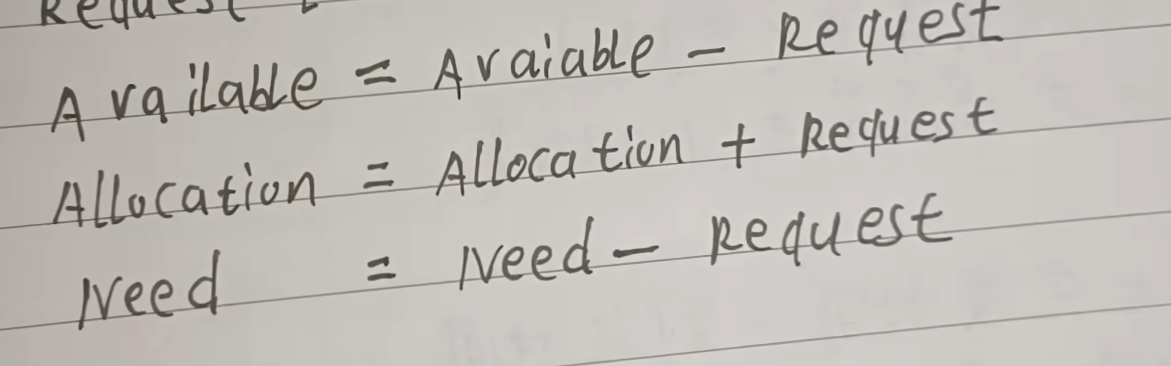 Request
Available = Avaiable - Request
Allocation = Allocation + Request
Need = Need - Request